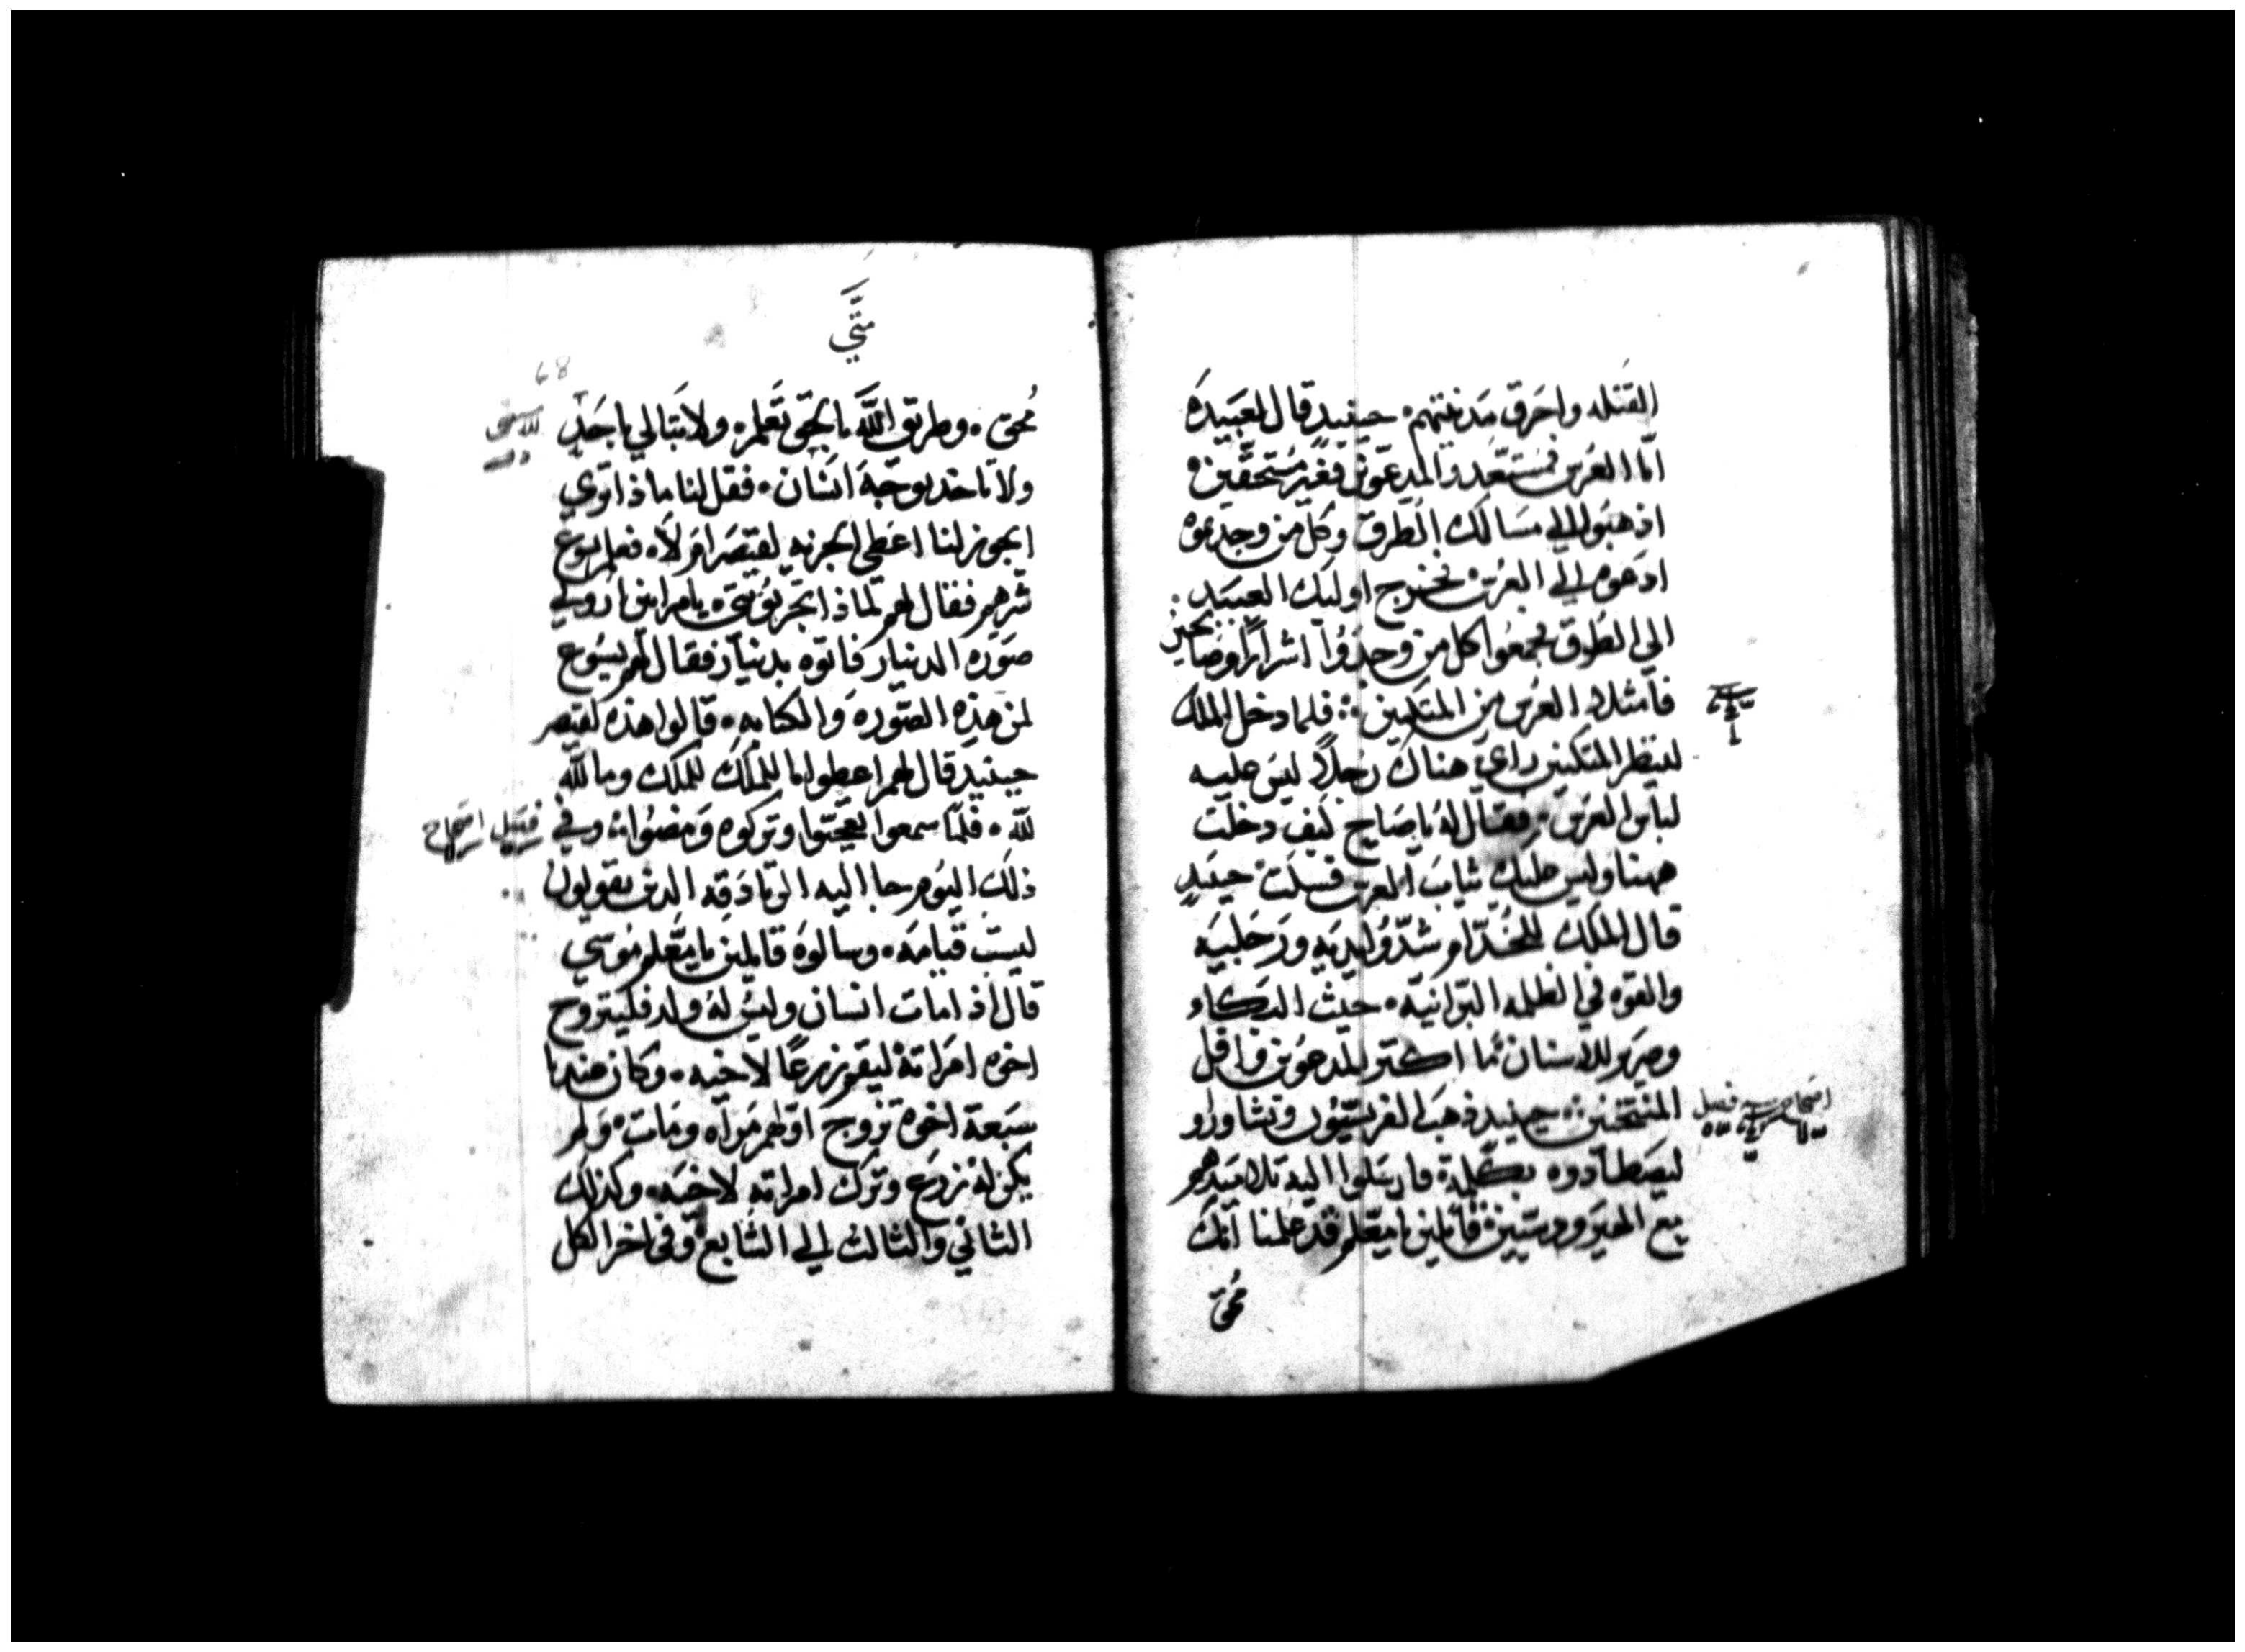 القتله واحرق مدينتهم. حينيد قال لعبيده
امّا العرس فمستعّد والمدعوّن فغير مستحقين
اذهبوا الي مسالك الطرق وكل من وجدتموه
ادعوه الي العرس فخرج اوليك العبيد
الي الطرق فجمعوا كل من وجدوا اشرارًا وصالحين
فامتلا العرس من المتكيين فلما دخل الملك
لينظر المتكيين راي هناك رجلاً ليس عليه
لباس العرس فقال لهُ يا صاح كيف دخلت
ههنا وليس عليك ثياب العرس فسكت حينيد
قال الملك للخدّام شدّوا يديه ورجليه
والقوه في الظلمه البرّانيّه. حيث البكاء
وصرير الاسنان فما اكتر المدعوين واقل
المنتخبين حينيد ذهب الفريسّيون وتشاورا
فصل
ليصطادوه بكلمة فارسلوا اليه تلاميذهم
مع الهيروديسيين قايلين يا معّلم قد علمنا انّك
مُحق
متَّي
68
مُحق. وطريق اللّه بالحق تعلم. ولا تبالي باحد
ولا تاخد بوجه انسان. فقل لنا ماذا تري
ايجوز لنا اعطي الجزيه لقيصر او لا. فعلم يسوع
شّرهم فقال لهم لماذا تجربوني يا مرايين اروني
صوره الدنيار فاتوه بدنيار فقال لهم يسوع
لمن هذه الصّوره والكتابه. قالوا هذه لقيصر
حينيد قال لهم اعطوا ما للملك للملك وما للّه
للّه. فلمّا سمعوا تعجّبوا وتركوه ومضوا وفي
ذلك اليوم جا اليه الزنادقه الدين يقولون
ليست قيامه. وسالوه قايلين يا معّلم موسي
قال اذا مات انسان وليس لهُ ولد فليتزوج
اخوه امراته ليقم زرعًا لاخيه. وكان عندنا
سبعة اخوة تزوج اوّلهم مراه ومات ولم
يكن لهُ زرع وترك امراته لاخيه. وكذلك
الثاني والثالث الي السّابع وفي اخر الكل